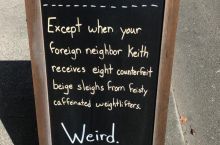 Except when your
foreign neighbor Keith
receives eight counterfeit
beige sleighs from feisty
caffeinated weightlifters.
Weird.